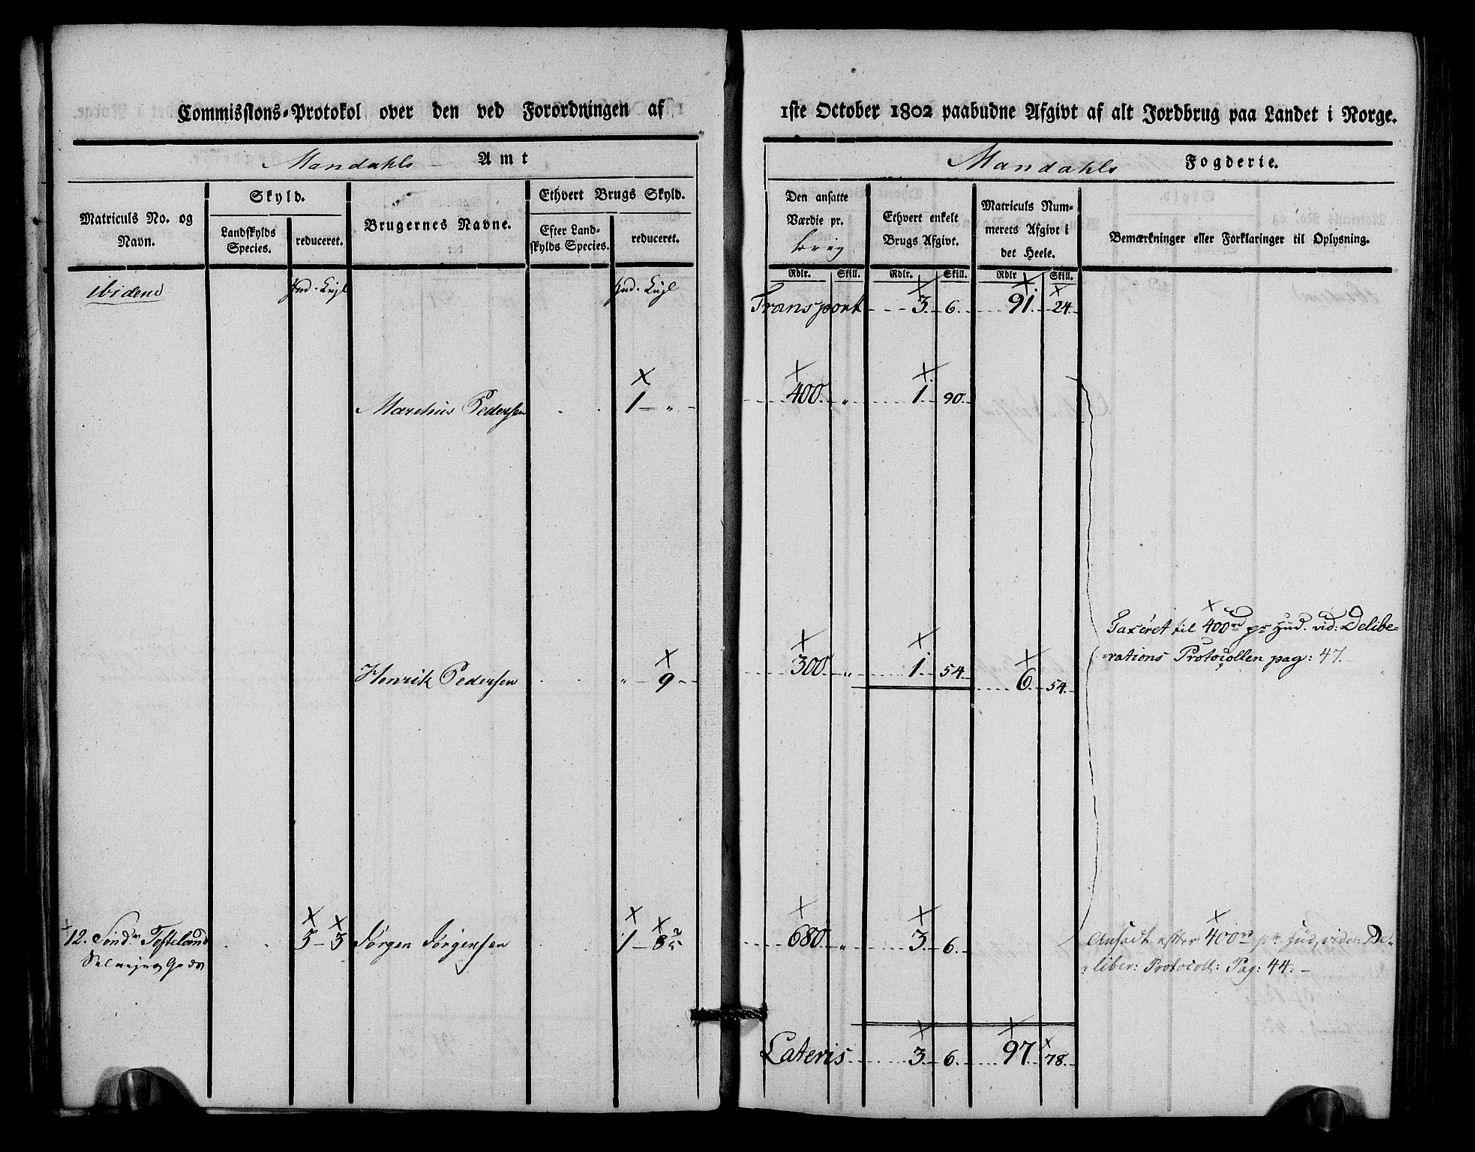 Commissions-Protokol over den ved Forordningen af
Mandahls Amt
Matriculs No. og Navn.
Skyld.
Landskylds Species.
reduceret.
Brugernes Navne.
Ethvert Brugs Skyld.
Efter Landskylds Species.
reduceret.
ibidem
Hud. Kngl
Hud. Kngl
Marchus Pedersen 1 „
Henrik Pedersen „ 9
12. Sønd Tofteland 5 3 Jørgen Jørgensen 1 8
1ste October 1802 paabudne Afgivt af alt Jordbrug paa Landet i Norge.
Mandahls Fogderie.
Den ansatte Værdie pr.
Ethvert enkelt Brugs Afgivt.
Matriculs Nummerets Afgivt i det Heele.
Bemærkninger eller Forklaringer til Oplysning.
Rdlr. Skill. Rdlr. Skill. Rdlr Skill.
Transport 3 6 91 24
400 „ 1 90
Taxeret til 400 rd pr Hud. vid: Delibe-
rations Protocollen pag: 47.
300 „ 1 54 6 54
680 „ 3 6
Ansadt efter 400 rd pr Hud, vide: De-
liber: Protocoll: Pag: 44. –
Lateris 3 6 97 78